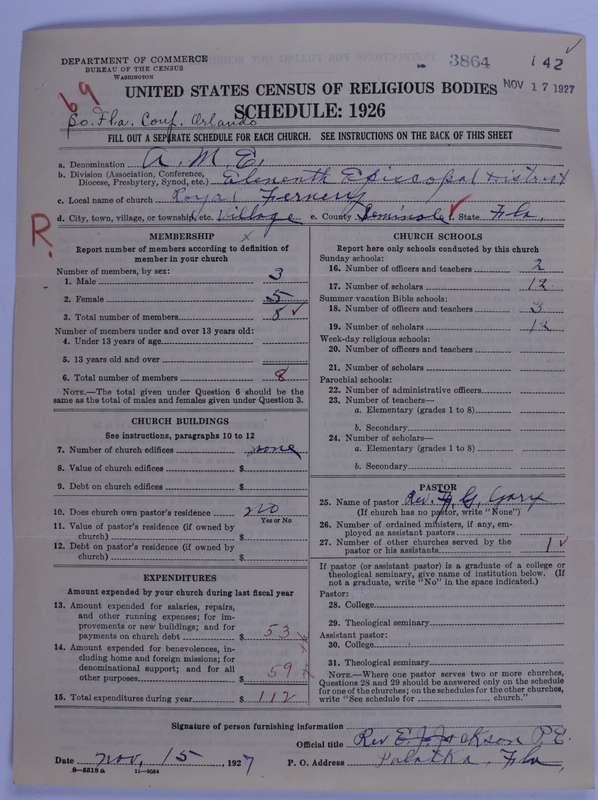 DEPARTMENT OF COMMERCE
BUREAU OF THE CENSUS
WASHINGTON
3864 142
NOV 17 1927
69
UNITED STATES CENSUS OF RELIGIOUS BODIES
So. Fla. Conf. Orlando
SCHEDULE: 1926
FILL OUT A SEPARATE SCHEDULE FOR EACH CHURCH. SEE INSTRUCTIONS ON THE BACK OF THIS SHEET
a. Denomination A. M. E.
b. Division (Association, Conference, Diocese, Presbytery, Synod, etc.) Eleventh Episcopal District
c. Local name of church Royal Fernery
d. City, town, village, or township, etc. Village e. County Seminole f. State Fla.
R.
MEMBERSHIP
Report number of members according to definition of
member in your church
Number of members, by sex:
1. Male 3
2. Female 5
3. Total number of members 8
Number of members under and over 13 years old:
4. Under 13 years of age
5. 13 years old and over
6. Total number of members 8
NOTE.—The total given under Question 6 should be
the same as the total of males and females given under Question 3.
CHURCH BUILDINGS
See instructions, paragraphs 10 to 12
7. Number of church edifices none
8. Value of church edifices $
9. Debt on church edifices $
10. Does church own pastor's residence no
Yes or No
11. Value of pastor's residence (if owned by
church) $
12. Debt on pastor's residence (if owned by
church) $
EXPENDITURES
Amount expended by your church during last fiscal year
13. Amount expended for salaries, repairs,
and other running expenses; for im-
provements or new buildings; and for
payments on church debt $ 53
14. Amount expended for benevolences, in-
cluding home and foreign missions; for
denominational support; and for all
other purposes $ 59
15. Total expenditures during year $ 112
CHURCH SCHOOLS
Report here only schools conducted by this church
Sunday schools:
16. Number of officers and teachers 2
17. Number of scholars 12
Summer vacation Bible schools:
18. Number of officers and teachers 3
19. Number of scholars 12
Week-day religious schools:
20. Number of officers and teachers
21. Number of scholars
Parochial schools:
22. Number of administrative officers
23. Number of teachers—
a. Elementary (grades 1 to 8)
b. Secondary
24. Number of scholars—
a. Elementary (grades 1 to 8)
b. Secondary
PASTOR
25. Name of pastor Rev. H. G. Gary
(If church has no pastor, write "None")
26. Number of ordained ministers, if any, em-
ployed as assistant pastors
27. Number of other churches served by the
pastor or his assistants 1
If pastor (or assistant pastor) is a graduate of a college or
theological seminary, give name of institution below. (If
not a graduate, write "No" in the space indicated.)
Pastor:
28. College
29. Theological seminary
Assistant pastor:
30. College
31. Theological seminary
NOTE.—Where one pastor serves two or more churches,
Questions 28 and 29 should be answered only on the schedule
for one of the churches; on the schedules for the other churches,
write "See schedule for church."
Signature of person furnishing information
Official title Rev E. J. Jackson P.E.
Date Nov. 15, 1927 P. O. Address Palatka, Fla,
8—5518 a 11—9034